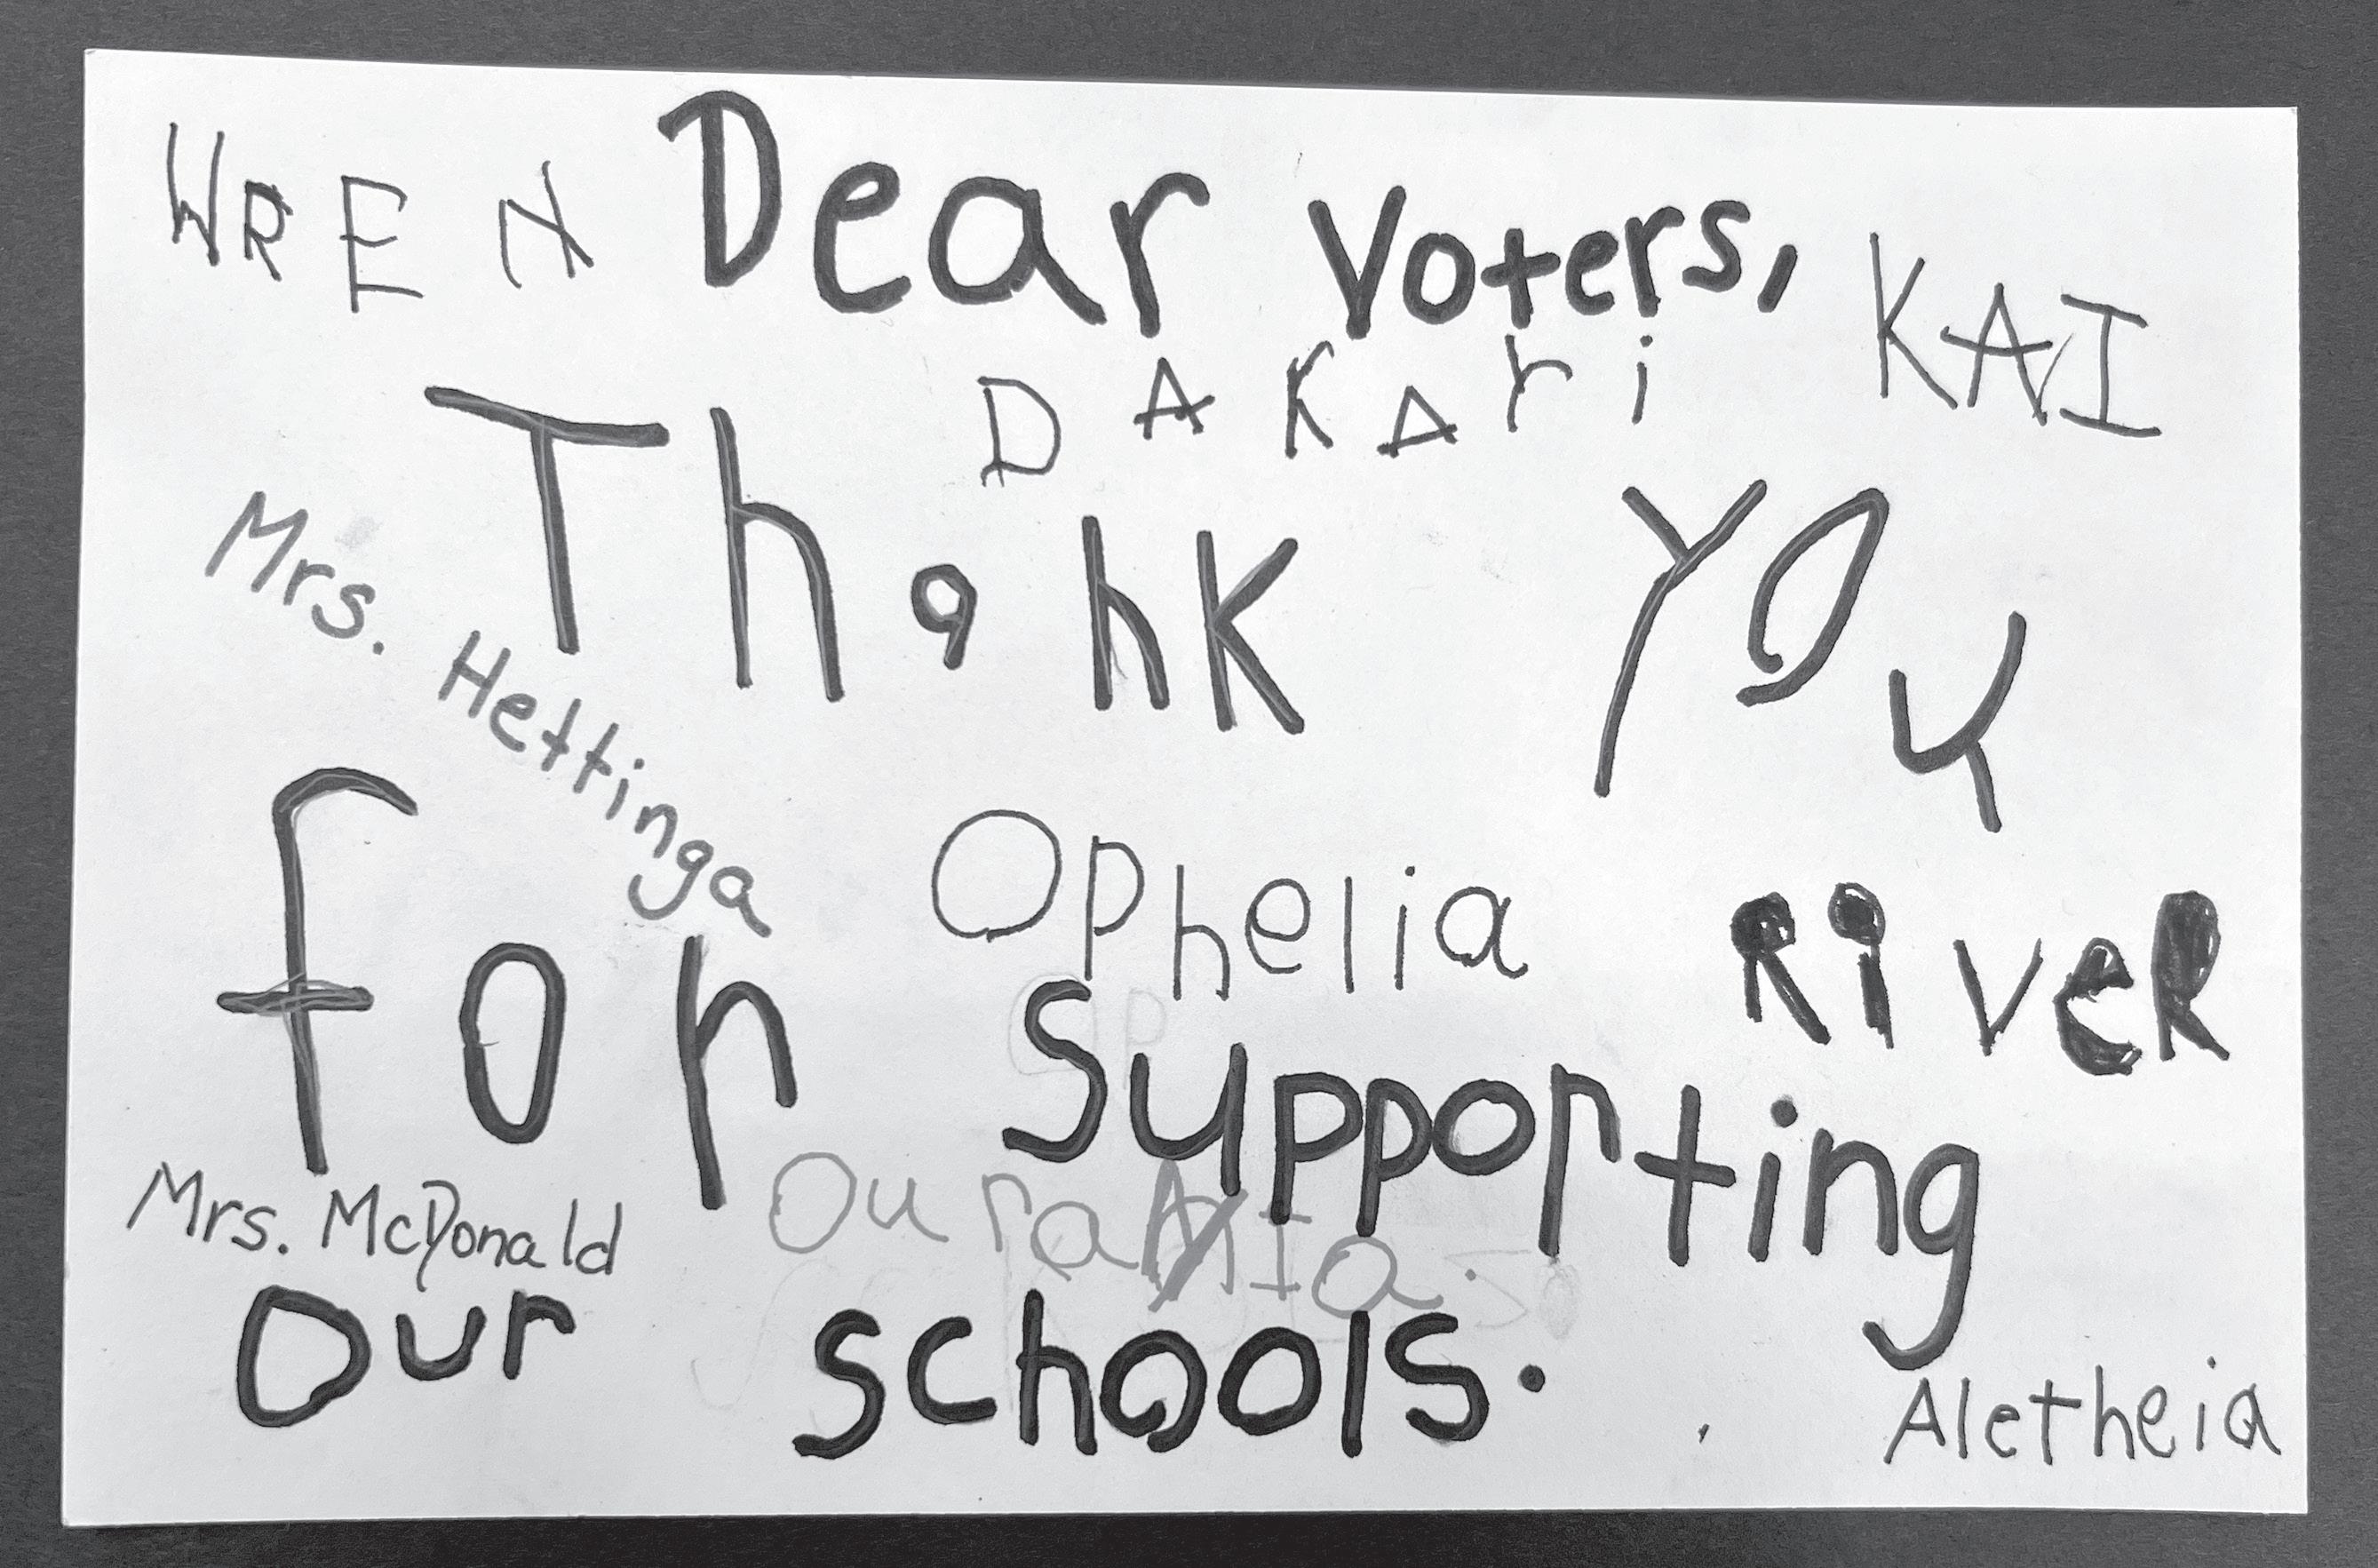 WREN Dear Voters, KAI
DAKAri
Thank you
Mrs. Hettinga
Ophelia RiveR
for Supporting
Mrs. McDonald Ourania.
Our schools.
Aletheia